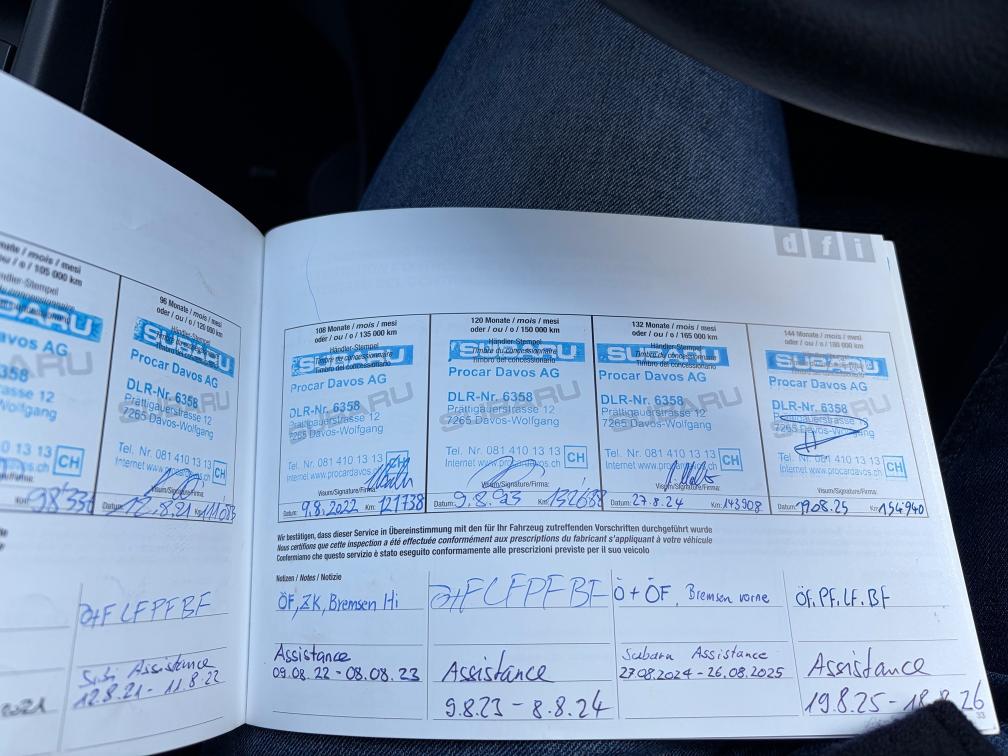 oder / ou / o / 105 000 km
SUBARU
avos AG
358
Wolfgang
0 13 13
CH
98'336
96 Monate / mois / mesi
oder / ou / o / 120 000 km
Händler-Stempel
SUBARU
Procar Davos AG
DLR-Nr. 6358
Prättigauerstrasse 12
7265 Davos-Wolfgang
Tel. Nr. 081 410 13 13
Internet www.procardavos.ch
CH
Visum/Signature/Firma:
Datum: 12.8.21 Km:
FLFPFBF
Assistance
12.8.21 - 11.8.22
dfi
108 Monate / mois / mesi
oder / ou / o / 135 000 km
Händler-Stempel
Timbre du concessionnaire
Timbro del concessionario
SUBARU
Procar Davos AG
SUBARU
DLR-Nr. 6358
Prättigauerstrasse 12
7265 Davos-Wolfgang
Tel. Nr. 081 410 13 13
Internet www.procardavos.ch
CH
Visum/Signature/Firma:
Datum: 9.8.2022 Km: 121738
120 Monate / mois / mesi
oder / ou / o / 150 000 km
Händler-Stempel
Timbre du concessionnaire
Timbro del concessionario
SUBARU
Procar Davos AG
SUBARU
DLR-Nr. 6358
Prättigauerstrasse 12
7265 Davos-Wolfgang
Tel. Nr. 081 410 13 13
Internet www.procardavos.ch
CH
Visum/Signature/Firma:
Datum: 9.8. Km:
132 Monate / mois / mesi
oder / ou / o / 165 000 km
Händler-Stempel
Timbre du concessionnaire
Timbro del concessionario
SUBARU
Procar Davos AG
SUBARU
DLR-Nr. 6358
Prättigauerstrasse 12
7265 Davos-Wolfgang
Tel. Nr. 081 410 13 13
Internet www.procardavos.ch
CH
Visum/Signature/Firma:
Datum: 27.8.24 Km: 143908
144 Monate / mois / mesi
oder / ou / o / 180 000 km
Händler-Stempel
Timbre du concessionnaire
Timbro del concessionario
SUBARU
Procar Davos AG
SUBARU
DLR-Nr. 6358
Prättigauerstrasse 12
7265 Davos-Wolfgang
Tel. Nr. 081 410 13 13
Internet www.procardavos.ch
CH
Visum/Signature/Firma:
Datum: 19.08.25 Km: 154'940
Wir bestätigen, dass dieser Service in Übereinstimmung mit den für Ihr Fahrzeug zutreffenden Vorschriften durchgeführt wurde
Nous certifions que cette inspection a été effectuée conformément aux prescriptions du fabricant s'appliquant à votre véhicule
Confermiamo che questo servizio è stato eseguito conformamente alle prescrizioni previste per il suo veicolo
Notizen / Notes / Notizie
ÖF, ZK, Bremsen Hi
Assistance
09.08.22 - 08.08.23
FLFPFBF
Assistance
9.8.23 - 8.8.24
Ö + ÖF, Bremsen vorne
Subaru Assistance
27.08.2024 - 26.08.2025
ÖF. PF. LF. BF
Assistance
19.8.25 - 18.8.26
33